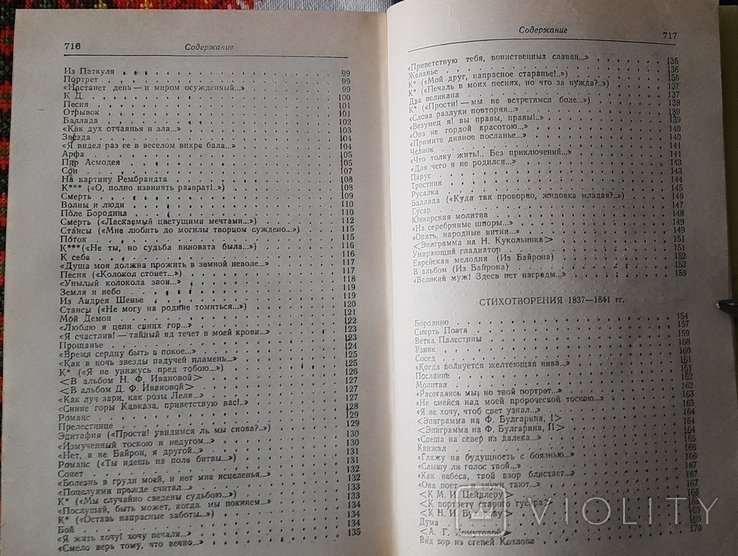 716 Содержание
Из Паткуля 99
Портрет 99
«Настанет день — и миром осужденный...» 99
К Д. 100
Песня 101
Отрывок 101
Баллада 102
«Как дух отчаянья и зла...» 104
Звезда 104
«Я видел раз ее в веселом вихре бала...» 104
Арфа 105
Пир Асмодея 105
Сон 107
На картину Рембрандта 108
К*** («О, полно извинять разврат!..») 108
Смерть 109
Волны и люди 110
Поле Бородина 110
Смерть («Ласкаемый цветущими мечтами...») 112
Стансы («Мне любить до могилы творцом суждено...») 115
Поток 115
К***(«Не ты, но судьба виновата была...») 116
К себе 116
«Душа моя должна прожить в земной неволе...» 117
Песня («Колокол стонет...») 117
«Унылый колокола звон...» 118
Земля и небо 118
Из Андрея Шенье 119
Стансы («Не могу на родине томиться...») 120
Мой Демон 121
«Люблю я цепи синих гор...»
«Я счастлив! — тайный яд течет в моей крови...» 123
Прощанье 123
«Время сердцу быть в покое...» 124
«Как в ночь звезды падучей пламень...» 125
К* («Я не унижусь пред тобою...»)
<В альбом Н. Ф. Ивановой>
<В альбом Д. Ф. Ивановой> 127
«Как луч зари, как розы Леля...» 127
«Синие горы Кавказа, приветствую вас!..» 128
Романс 128
Прелестнице 129
Эпитафия («Прости! увидимся ль мы снова?..») 129
«Измученный тоскою и недугом...» 130
«Нет, я не Байрон, я другой...» 131
Романс («Ты идешь на поле битвы...») 131
Сонет 132
«Болезнь в груди моей, и нет мне исцеленья...» 132
«Поцелуями прежде считал...» 132
К* («Мы случайно сведены судьбою...») 133
«Послушай, быть может, когда мы покинем...» 133
К* («Оставь напрасные заботы...») 134
Бой 134
«Я жить хочу! хочу печали...» 134
«Смело верь тому, что вечно...» 135
Содержание 717
«Приветствую тебя, воинственных славян...» 135
Желанье 136
К* («Мой друг, напрасное старанье!..») 136
К* («Печаль в моих песнях, но что за нужда?..») 137
Два великана 137
К* («Прости! — мы не встретимся боле...») 138
«Слова разлуки повторяя...»
«Безумец я! вы правы, правы!..»
«Она не гордой красотою...»
«Примите дивное посланье...»
Челнок
«Что толку жить!.. Без приключений...»
«Для чего я не родился...»
Парус
Тростник 144
Русалка 145
Баллада («Куда так проворно, жидовка младая?..») 146
Гусар 147
Юнкерская молитва 148
«На серебряные шпоры...» 149
«Опять, народные витии...» 149
<Эпиграмма на Н. Кукольника> 151
Умирающий гладиатор 151
Еврейская мелодия (Из Байрона) 152
В альбом (Из Байрона) 152
«Великий муж! Здесь нет награды...» 153
СТИХОТВОРЕНИЯ 1837—1841 гг.
Бородино 154
Смерть Поэта 157
Ветка Палестины 159
Узник 160
Сосед
«Когда волнуется желтеющая нива...»
Послание
Молитва
«Расстались мы, но твой портрет...»
«Не смейся над моей пророческой тоскою...» 163
«Я не хочу, чтоб свет узнал...» 163
<Эпиграмма на Ф. Булгарина, I> 164
<Эпиграмма на Ф. Булгарина, II> 164
«Спеша на север из далека...» 164
Кинжал 165
«Гляжу на будущность с боязнью...»
«Слышу ли голос твой...»
«Как небеса, твой взор блистает...»
«Она поет — и звуки тают...»
<К М. И. Цейдлеру>
<К портрету старого гусара>
<К Н. И. Бухарову>
Дума
<А. Г. Хомутовой>
Вид гор из степей Козлова 170
VIOLITY